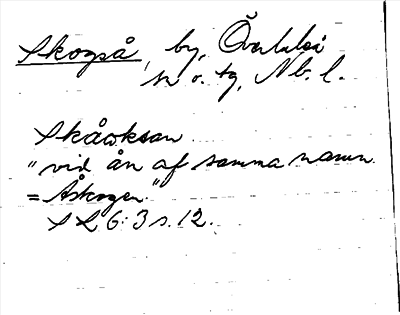 Skogså, by, Överluleå
sn o. tg, Nb. l.
Skåoksan
"vid ån af samma namn
= Åskogen."
SL 6:3 s. 12.